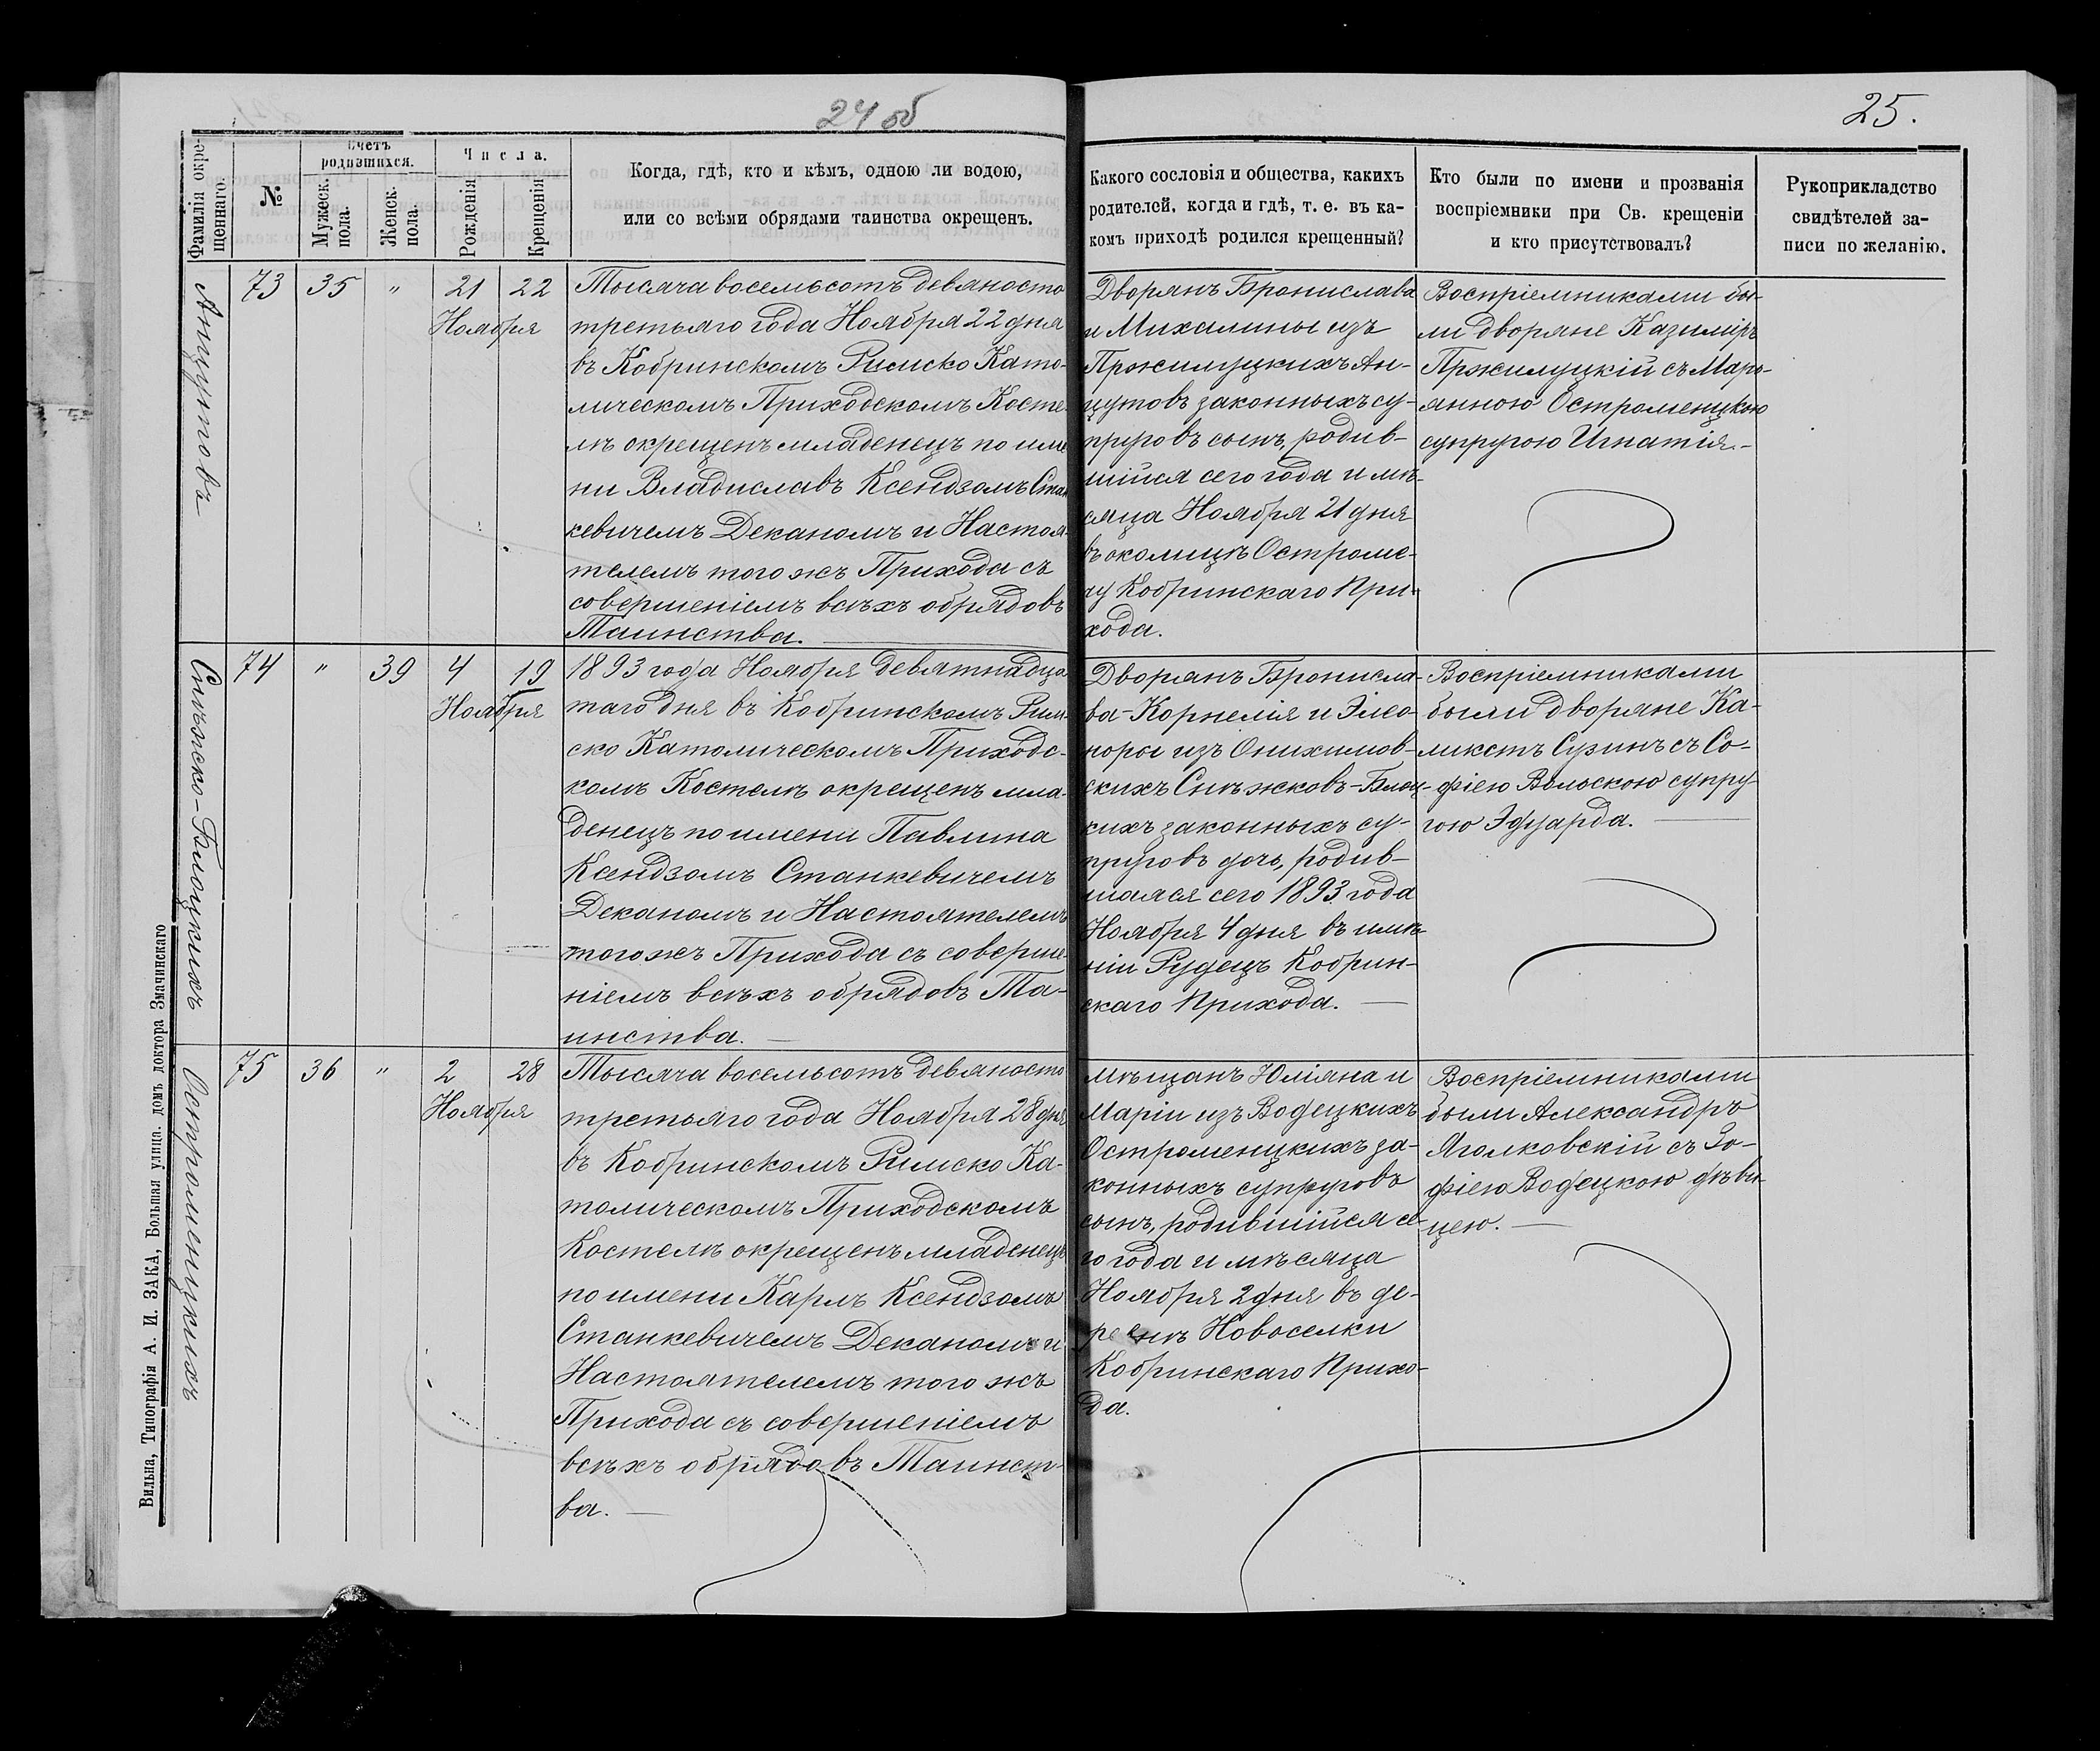 24 об
25.
Фамилія окре-
щеннаго.
№
Счетъ
родившихся.
Мужеск.
пола.
Женск.
пола.
Числа.
Рожденія
Крещенія
Когда, гдѣ, кто и кѣмъ, одною ли водою,
или со всѣми обрядами таинства окрещенъ.
Какого сословія и общества, какихъ
родителей, когда и гдѣ, т. е. въ ка-
комъ приходѣ родился крещенный?
Кто были по имени и прозванія
воспріемники при Св. крещеніи
и кто присутствовалъ?
Рукоприкладство
свидѣтелей за-
писи по желанію.
Анцутовъ
73 35 " 21 22
Ноября
Тысяча восемьсотъ девяносто
третьяго года Ноября 22 дня
въ Кобринскомъ Римско Като-
лическомъ Приходскомъ Косте-
лѣ окрещенъ младенецъ по име
ни Владиславъ Ксендзомъ Стан
кевичемъ Деканомъ и Настоя-
телемъ того жъ Прихода съ
совершеніемъ всѣхъ обрядовъ
Таинства.
Дворянъ Бронислава
и Михалины изъ
Пржилуцкихъ Ан-
цутовъ законныхъ су-
пруговъ сынъ, родив-
шійся сего года и мѣ-
сяца Ноября 21 дня
въ околицѣ Остроме-
чу Кобринскаго При-
хода.
Воспріемниками бы-
ли дворяне Казимiръ
Пржилуцкій съ Марь-
янною Остроменцкою
супругою Игнатія.-
Снѣжско-Блоцкихъ
74 " 39 4 19
Ноября
1893 года Ноября девятнадца
таго дня въ Кобринскомъ Рим-
ско Католическомъ Приходс-
комъ Костелѣ окрещенъ мла-
денецъ по имени Павлина
Ксендзомъ Станкевичемъ
Деканомъ и Настоятелемъ
того жъ Прихода съ соверше
ніемъ всѣхъ обрядовъ Та-
инства.
Дворянъ Брописла-
ва-Корнелія и Элео-
норы изъ Онихимов-
скихъ Снѣжковъ-Блоц-
кихъ законныхъ су-
пруговъ дочь, родив-
шаяся сего 1893 года
Ноября 4 дня въ имѣ
ніи Рудецъ Кобрин-
скаго Прихода.
Воспріемниками
были дворяне Ка-
ликстъ Сузинъ съ Со-
фіею Вольскою супру-
гою Эдуарда.
Остроменцкихъ
75 36 " 2 28
Ноября
Тысяча восемьсотъ девяносто
третьяго года Ноября 28 дня
въ Кобринскомъ Римско Ка-
толическомъ Приходскомъ
Костелѣ окрещенъ младенецъ
по имени Карлъ Ксендзомъ
Станкевичемъ Деканомъ и
Настоятелемъ того жъ
Прихода съ совершеніемъ
всѣхъ обрядовъ Таинст-
ва.
Мѣщанъ Юліяна и
Маріи изъ Водецкихъ
Остроменцкихъ за-
конныхъ супруговъ
сынъ, родившійся се
го года и мѣсяца
Ноября 2 дня въ де-
ревнѣ Новоселки
Кобринскаго Прихо-
да.
Воспріемниками
были Александръ
Яголковскій съ Зо-
фіею Водецкою дѣви
цею.
Вильна, Типографія А. И. ЗАКА, Большая улица. домъ доктора Змачинскаго